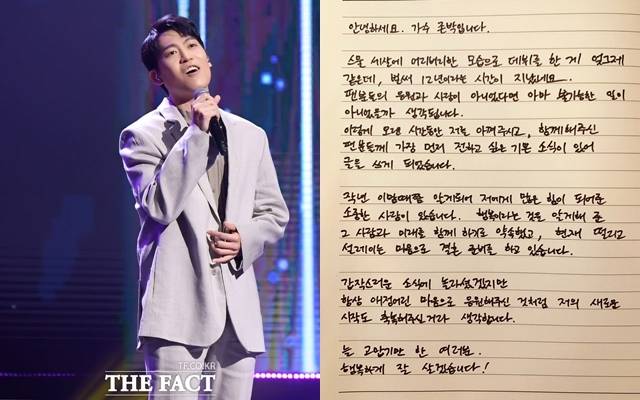 안녕하세요. 가수 존박입니다.
스물 세살에 어리버리한 모습으로 데뷔를 한 게 엊그제
같은데, 벌써 12년이라는 시간이 지났네요.
팬분들의 응원과 사랑이 아니었다면 아마 불가능한 일이
아니었을까 생각됩니다.
이렇게 오랜 시간동안 저를 아껴주시고, 함께해주신
팬분들께 가장 먼저 전하고 싶은 기쁜 소식이 있어
글을 쓰게 되었습니다.
작년 이맘때쯤 알게되어 저에게 많은 힘이 되어준
소중한 사람이 있습니다. 행복이라는 것을 알게해 준
그 사람과 미래를 함께 하기로 약속했고, 현재 떨리고
설레이는 마음으로 결혼 준비를 하고 있습니다.
갑작스러운 소식에 놀라셨겠지만
항상 애정어린 마음으로 응원해주신 것처럼 저의 새로운
시작도 축복해주실거라 생각합니다.
늘 고맙기만 한 여러분.
행복하게 잘 살겠습니다!
TF.CO.KR
THE FACT